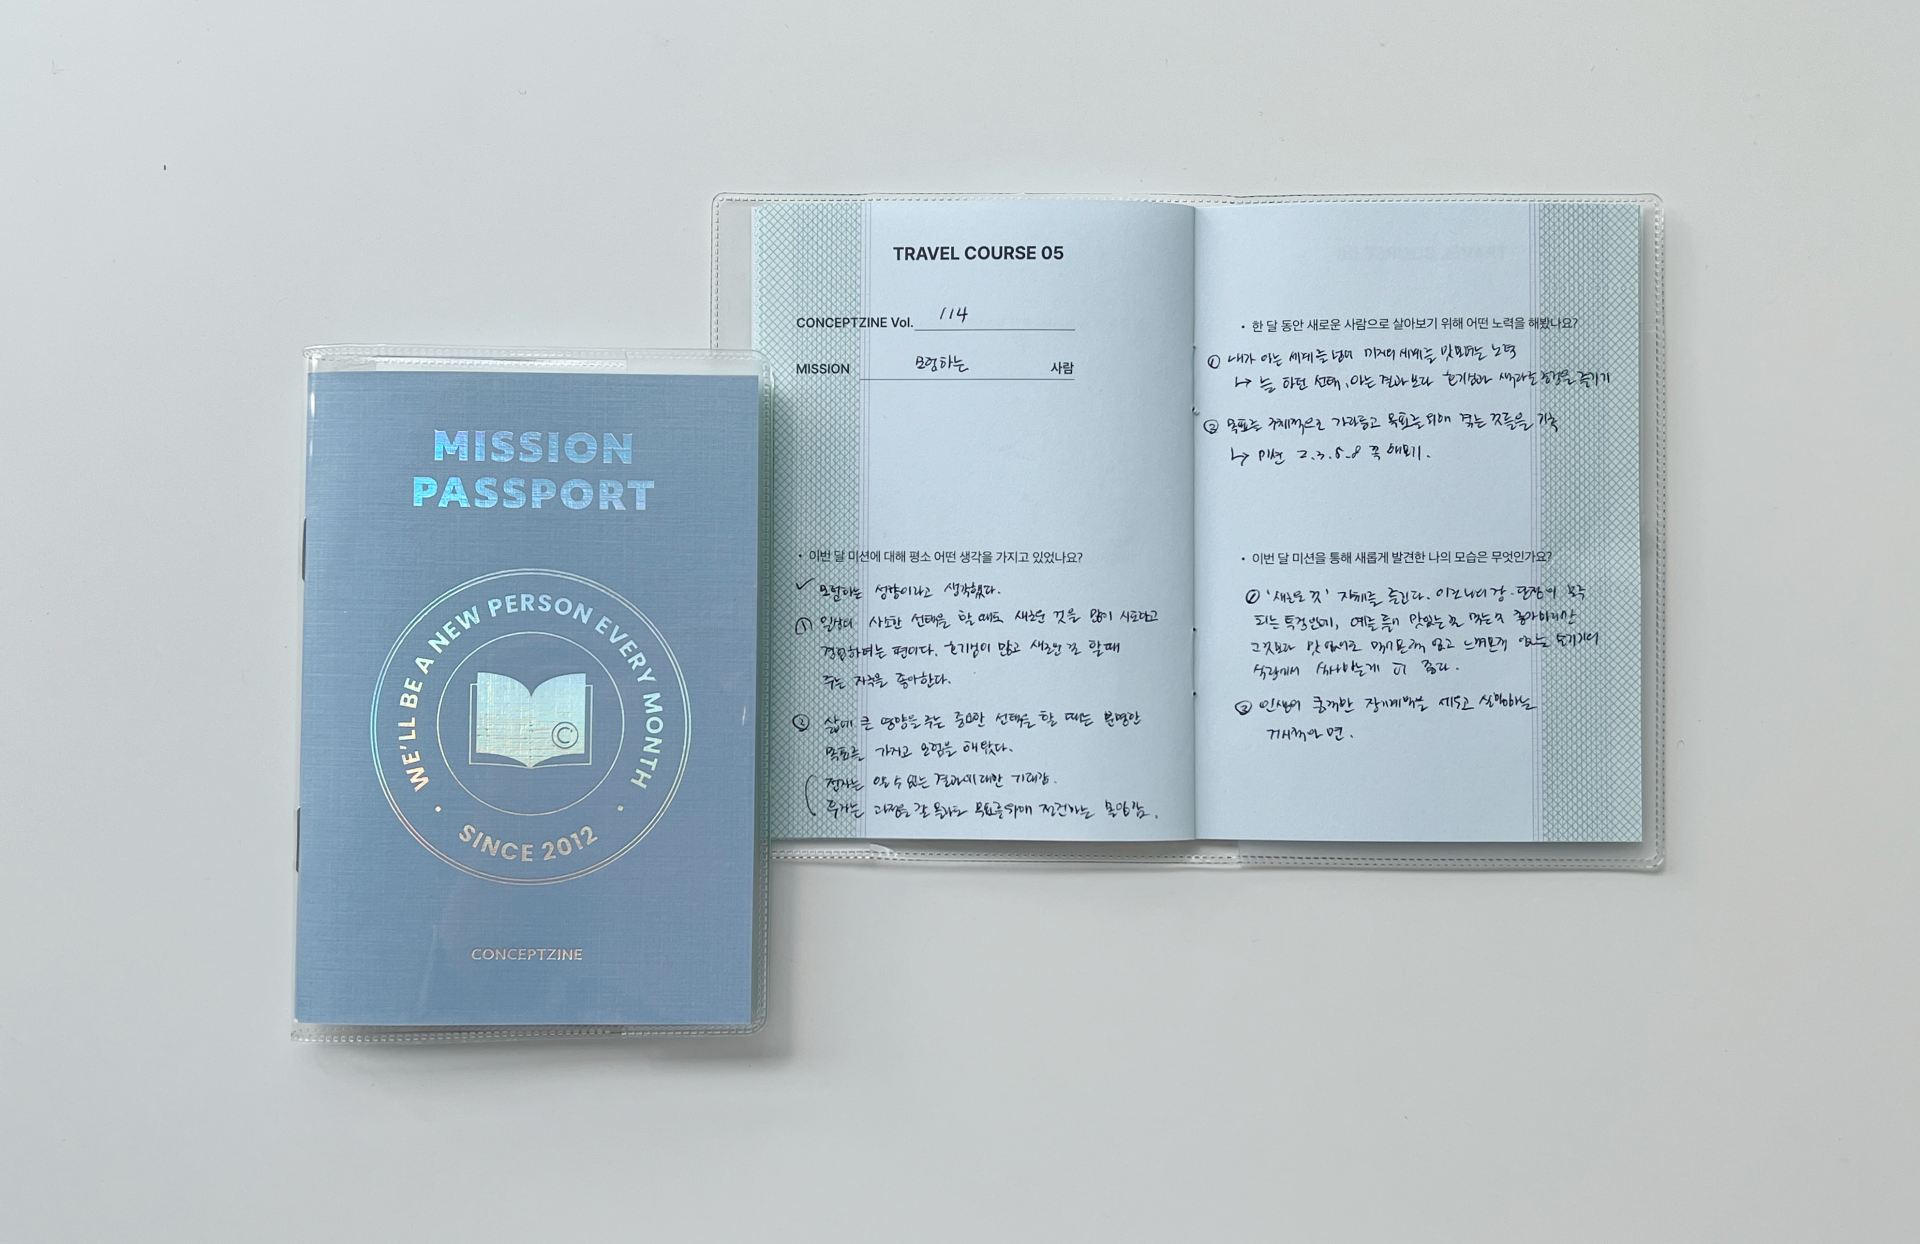 MISSION
PASSPORT
WE'LL BE A NEW PERSON EVERY MONTH
SINCE 2012
CONCEPTZINE
TRAVEL COURSE 05
CONCEPTZINE Vol. 114
MISSION 모험하는 사람
• 이번 달 미션에 대해 평소 어떤 생각을 가지고 있었나요?
✓ 모험하는 성향이라고 생각했다.
① 일상의 사소한 선택을 할 때도 새로운 것을 많이 시도하고
경험하려는 편이다. 호기심이 많고 새로운 걸 할 때
주는 자극을 좋아한다.
② 삶에 큰 영향을 주는 중요한 선택을 할 때는 분명한
목표를 가지고 모험을 해왔다.
전자는 알 수 없는 결과에 대한 기대감.
후자는 과정을 잘 몰라도 목표를 위해 전진하는 몰입감.
• 한 달 동안 새로운 사람으로 살아보기 위해 어떤 노력을 해봤나요?
① 내가 아는 세계를 넘어 미지의 세계를 맛보려는 노력
↳ 늘 하던 선택, 아는 결과보다 호기심과 색다른 을 즐기기
② 목표를 구체적으로 가다듬고 목표를 위해 겪는 것들을 기록
↳ 미션 2.3.5.8 꼭 해보기.
• 이번 달 미션을 통해 새롭게 발견한 나의 모습은 무엇인가요?
① '새로운 것' 자체를 즐긴다. 이건 나의 장·단점이 모두
되는 특징인데, 예를 들어 맛있는 걸 먹는 것 좋아하지만
그것보다 맛 없어도 먹어본 적 없고 느껴본 적 없는
식당에서 게 더 좋다.
② 인생의 장기계획을 세우고 실험하는
거시적인 면.